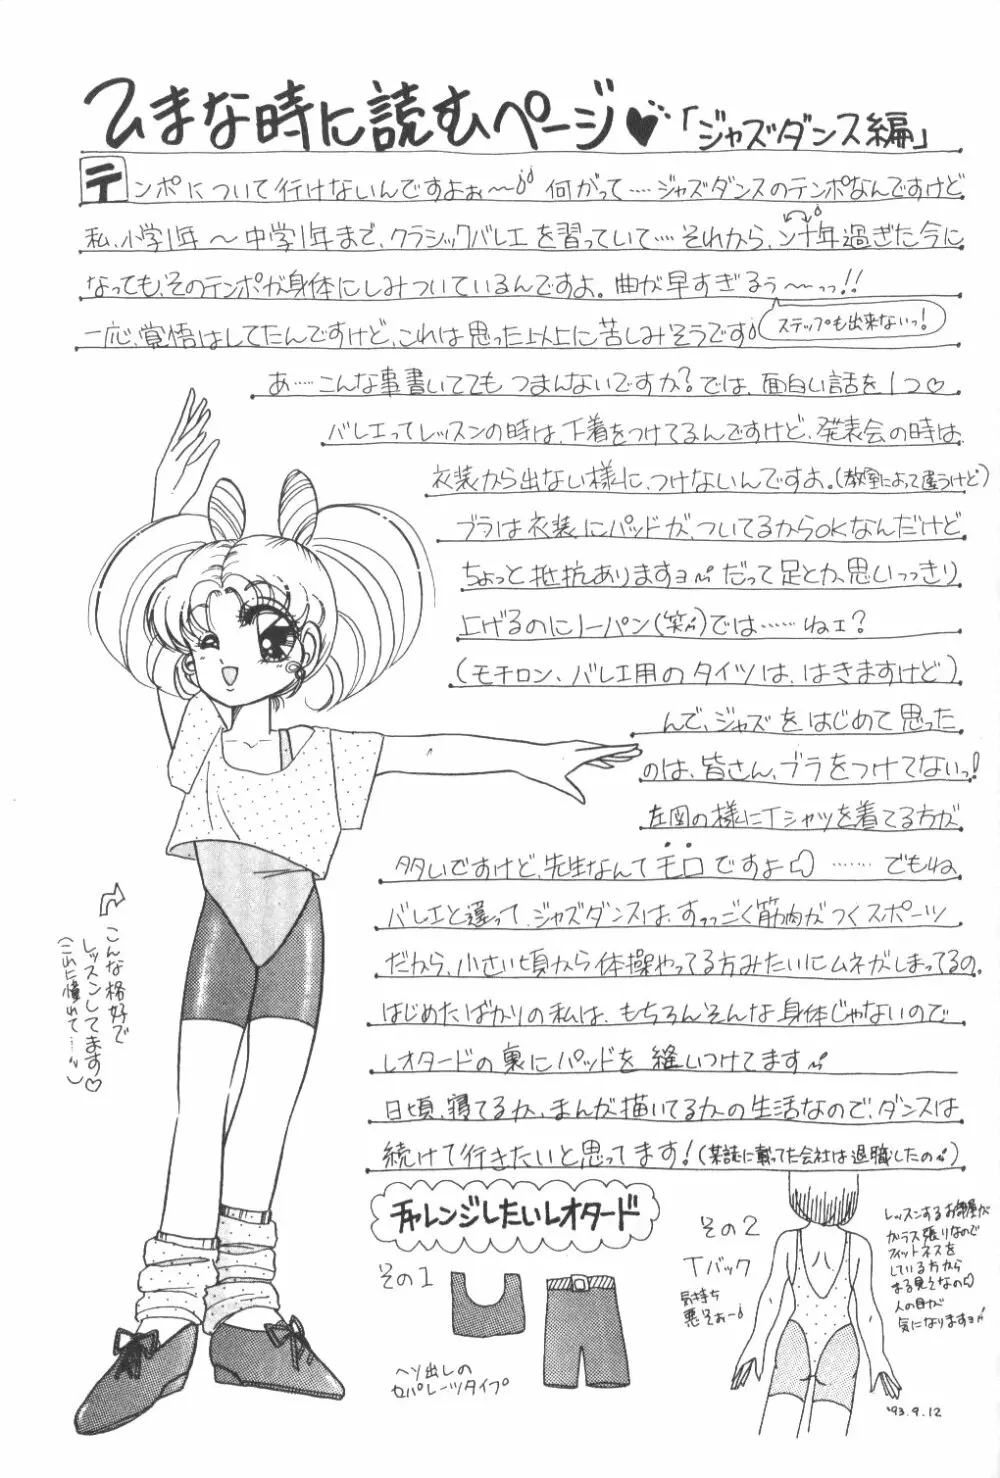 ひまな時に読むページ♥「ジャズダンス編」
テンポについて行けないんですよぉ〜 何がって……ジャズダンスのテンポなんですけど
私、小学1年〜中学1年まで、クラシックバレエを習っていて……それから、ン十年過ぎた今に
なっても、そのテンポが身体にしみついているんですよ。曲が早すぎるぅ〜っっ!!
ステップも出来ないっ!
一応、覚悟はしてたんですけど、これは思った以上に苦しみそうです
あ……こんな事書いててもつまんないですか?では、面白い話を1つ♡
バレエってレッスンの時は、下着をつけてるんですけど、発表会の時は、
衣装から出ない様に、つけないんですよ。(教室によって違うけど)
ブラは衣装にパッドが、ついてるからOKなんだけど
ちょっと抵抗ありますョ〜 だって足とか、思いっっきり
上げるのにノーパン(笑)では……ねェ?
(モチロン、バレエ用のタイツは、はきますけど)
んで、ジャズをはじめて思った
のは、皆さん、ブラをつけてないっ!
左図の様にTシャツを着てる方が
多いですけど、先生なんてモロですよ ……でもね
バレエと違って、ジャズダンスは、すっっごく筋肉がつくスポーツ
だから、小さい頃から体操やってる方みたいにムネがしまってるの。
はじめたばかりの私は、もちろんそんな身体じゃないので
レオタードの裏にパッドを縫いつけてます
日頃、寝てるか、まんが描いてるかの生活なので、ダンスは
続けて行きたいと思ってます!(某誌に載ってた会社は退職したの)
こんな格好で
レッスンしてます♡
(これに憧れて……)
チャレンジしたいレオタード
その1
ヘソ出しの
セパレーツタイプ
その2
Tバック
気持ち
悪そぉー
レッスンするお部屋が
ガラス張りなので
フィットネスを
している方から
まる見えなの
人の目が
気になりますョ
'93.9.12